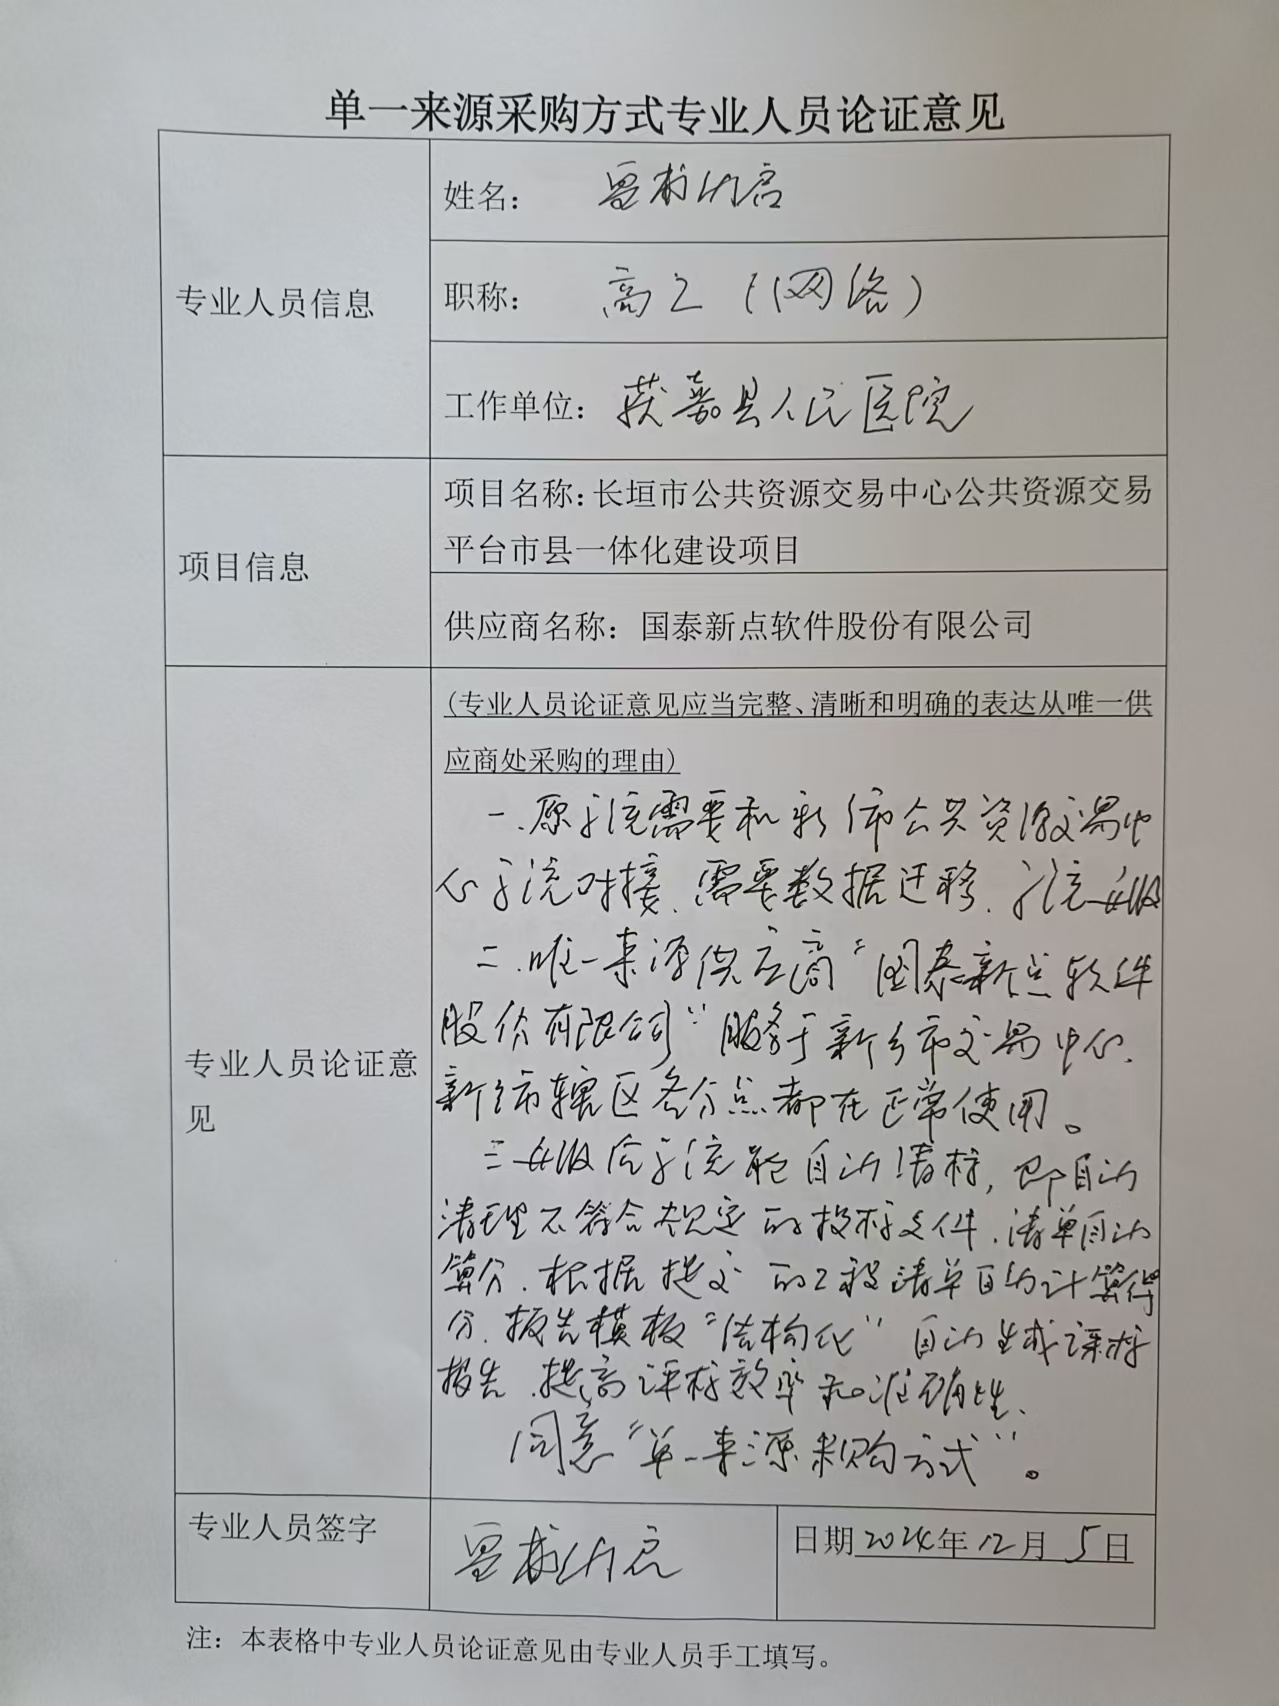 单一来源采购方式专业人员论证意见
专业人员信息
姓名：
职称： 高工（网络）
工作单位： 获嘉县人民医院
项目信息
项目名称：长垣市公共资源交易中心公共资源交易
平台市县一体化建设项目
供应商名称：国泰新点软件股份有限公司
专业人员论证意
见
(专业人员论证意见应当完整、清晰和明确的表达从唯一供
应商处采购的理由)
一、原系统需要和新乡市公共资源交易中
心系统对接、需要数据迁移、系统升级
二、唯一来源供应商“国泰新点软件
股份有限公司”服务于新乡市交易中心、
新乡市辖区各分点都在正常使用。
三、升级后系统能自动清标，即自动
清理不符合规定的投标文件、清单自动
算分、根据提交的工程清单自动计算得
分、报告模板“结构化”自动生成评标
报告、提高评标效率和准确性、
同意“单一来源采购方式”。
专业人员签字
日期2024年12月5日
注：本表格中专业人员论证意见由专业人员手工填写。